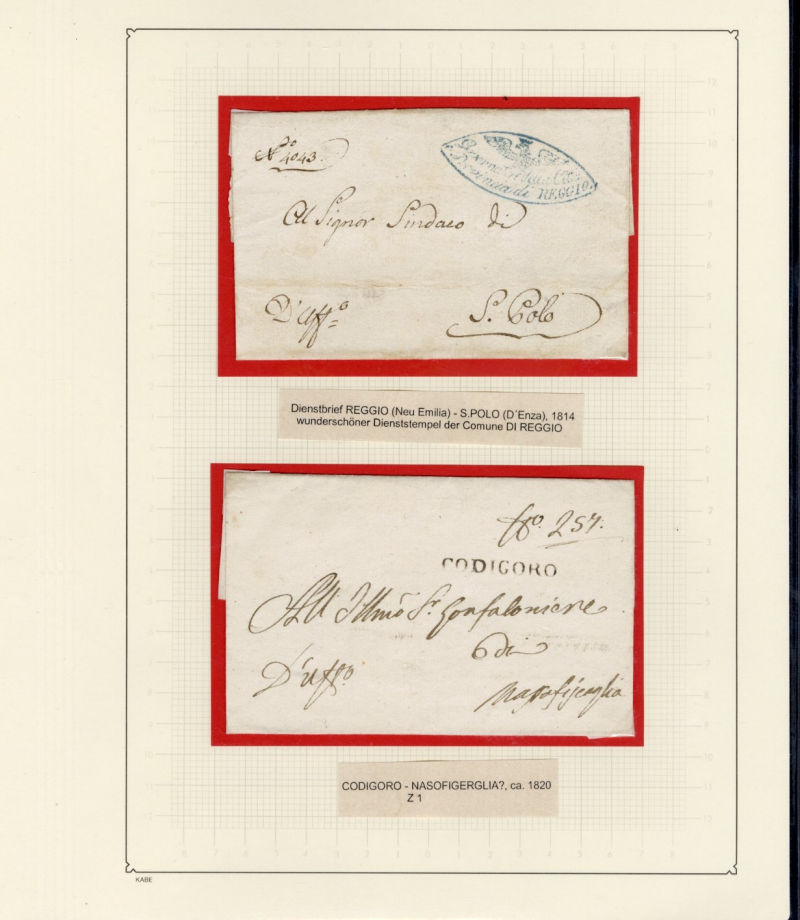 No 4043.
Provincia di REGGIO.
Al Signor Sindaco di
D'Uffo
S. Polo
Dienstbrief REGGIO (Neu Emilia) - S.POLO (D´Enza), 1814
wunderschöner Dienststempel der Comune DI REGGIO
No. 257.
CODIGORO
All Illmo Sr. Gonfaloniere
di
D'Uffo
Massafiscaglia
CODIGORO - NASOFIGERGLIA?, ca. 1820
Z 1
KABE